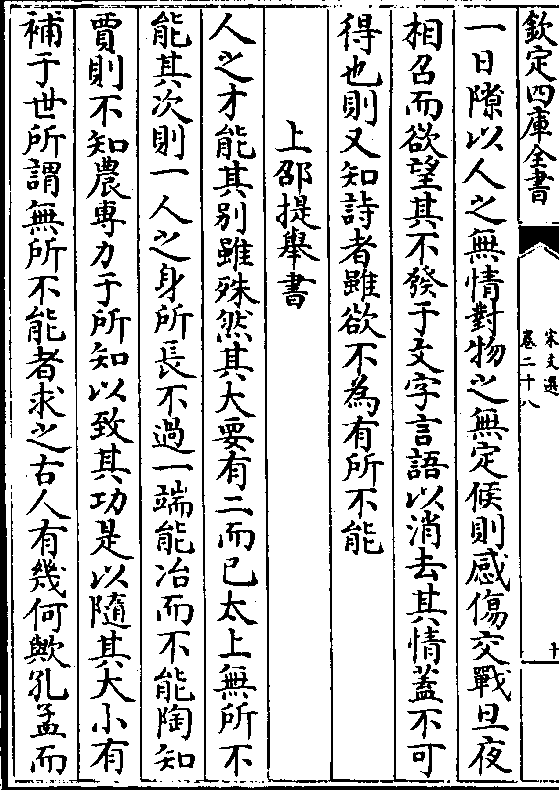 欽定四庫全書
宋文選
卷二十八
十
一日隙以人之無情對物之無定候則感傷交戰旦夜
相召而欲望其不發于文字言語以消去其情蓋不可
得也則又知詩者雖欲不為有所不能
上邵提舉書
人之才能其别雖殊然其大要有二而已太上無所不
能其次則一人之身所長不過一端能冶而不能陶知
賈則不知農專力于所知以致其功是以隨其大小有
補于世所謂無所不能者求之古人有幾何歟孔孟而